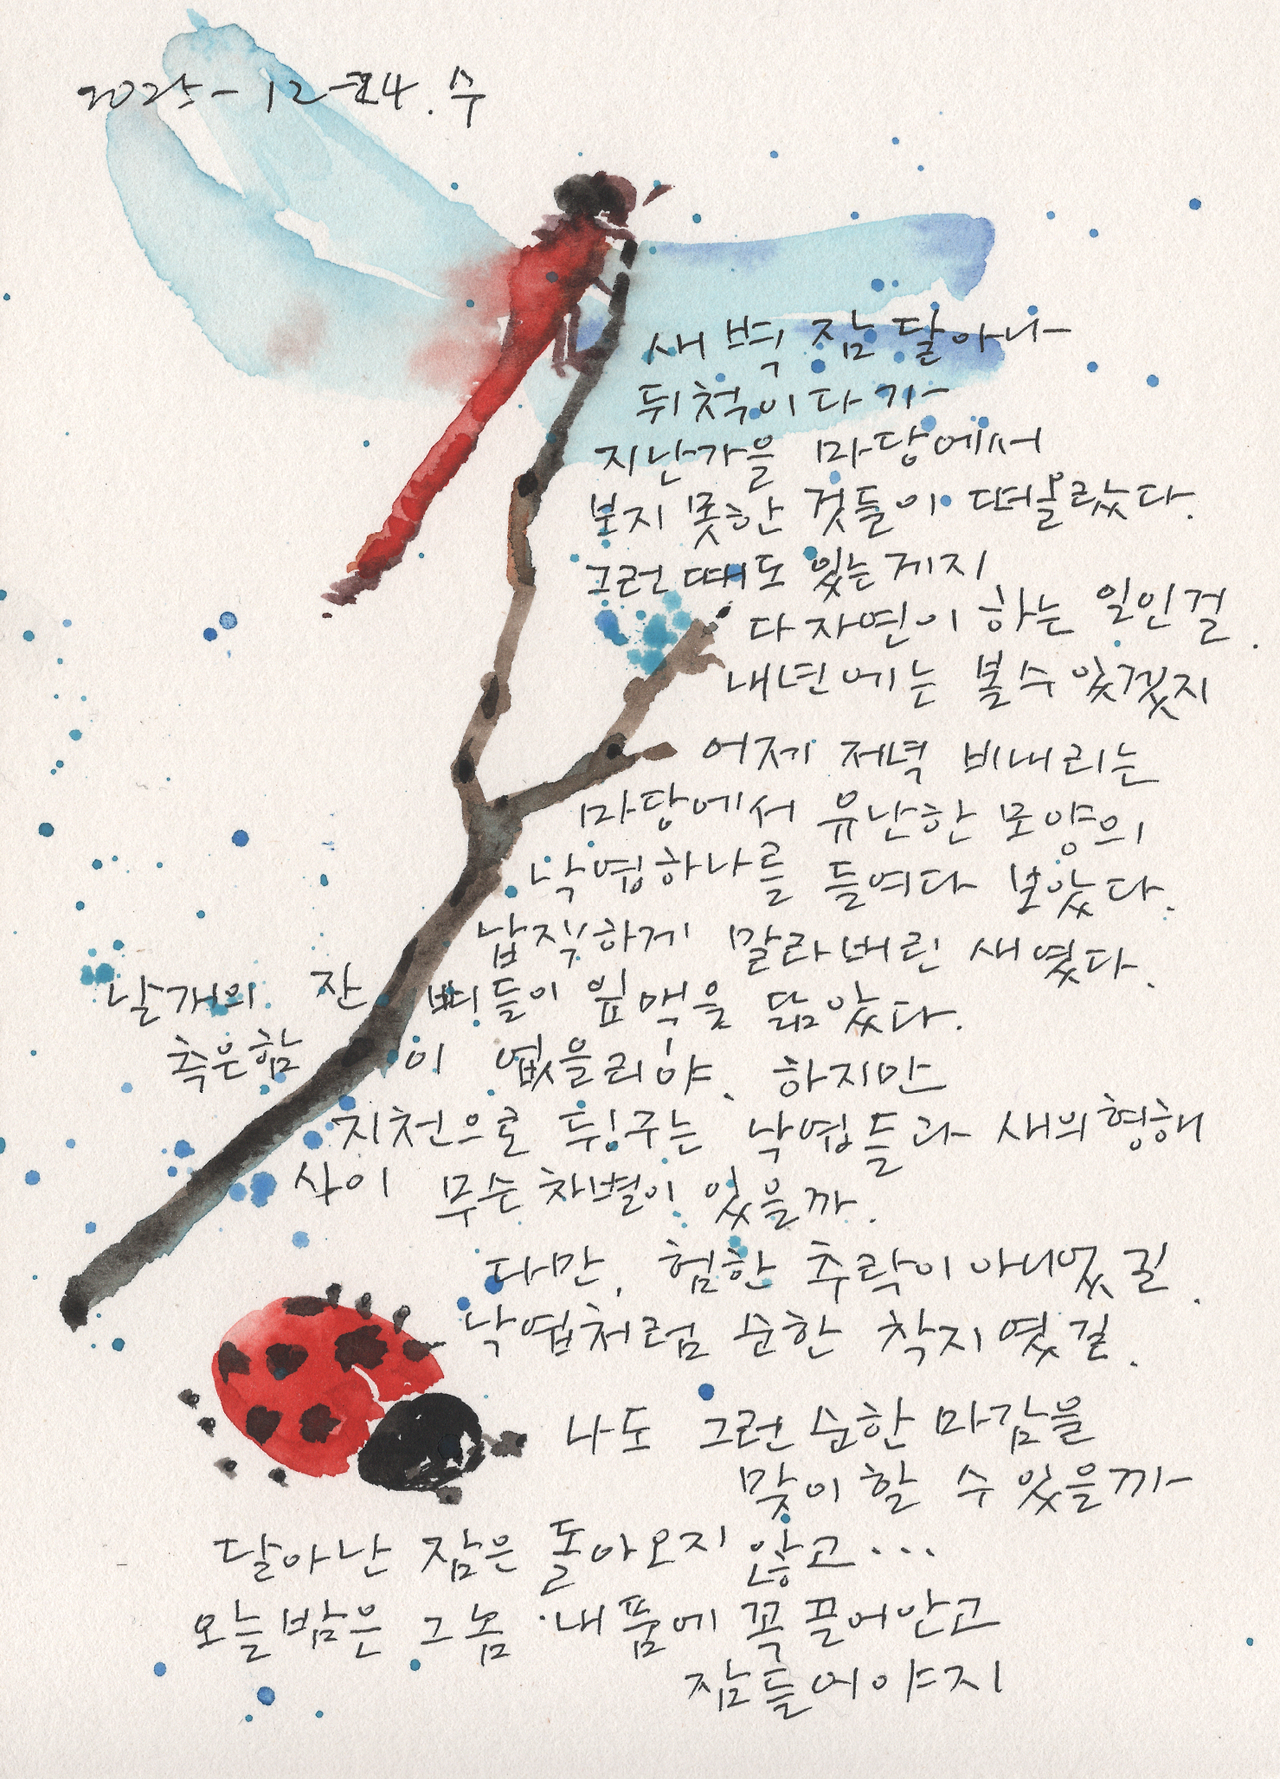 2025-12-24.수
새벽 잠 달아나
뒤척이다가
지난가을 마당에서
보지 못한 것들이 떠올랐다.
그런 때도 있는게지
다 자연이 하는 일인걸.
내년에는 볼수 있겠지
어제 저녁 비내리는
마당에서 유난한 모양의
낙엽하나를 들여다 보았다.
납작하게 말라버린 새였다.
날개의 잔 뼈들이 잎맥을 닮았다.
측은함이 없을리야, 하지만
지천으로 뒹구는 낙엽들과 새의 형해
사이 무슨 차별이 있을까.
다만, 험한 추락이 아니었길.
낙엽처럼 순한 착지였길.
나도 그런 순한 마감을
맞이 할 수 있을까
달아난 잠은 돌아오지 않고...
오늘밤은 그놈 내 품에 꼭 끌어안고
잠들어야지